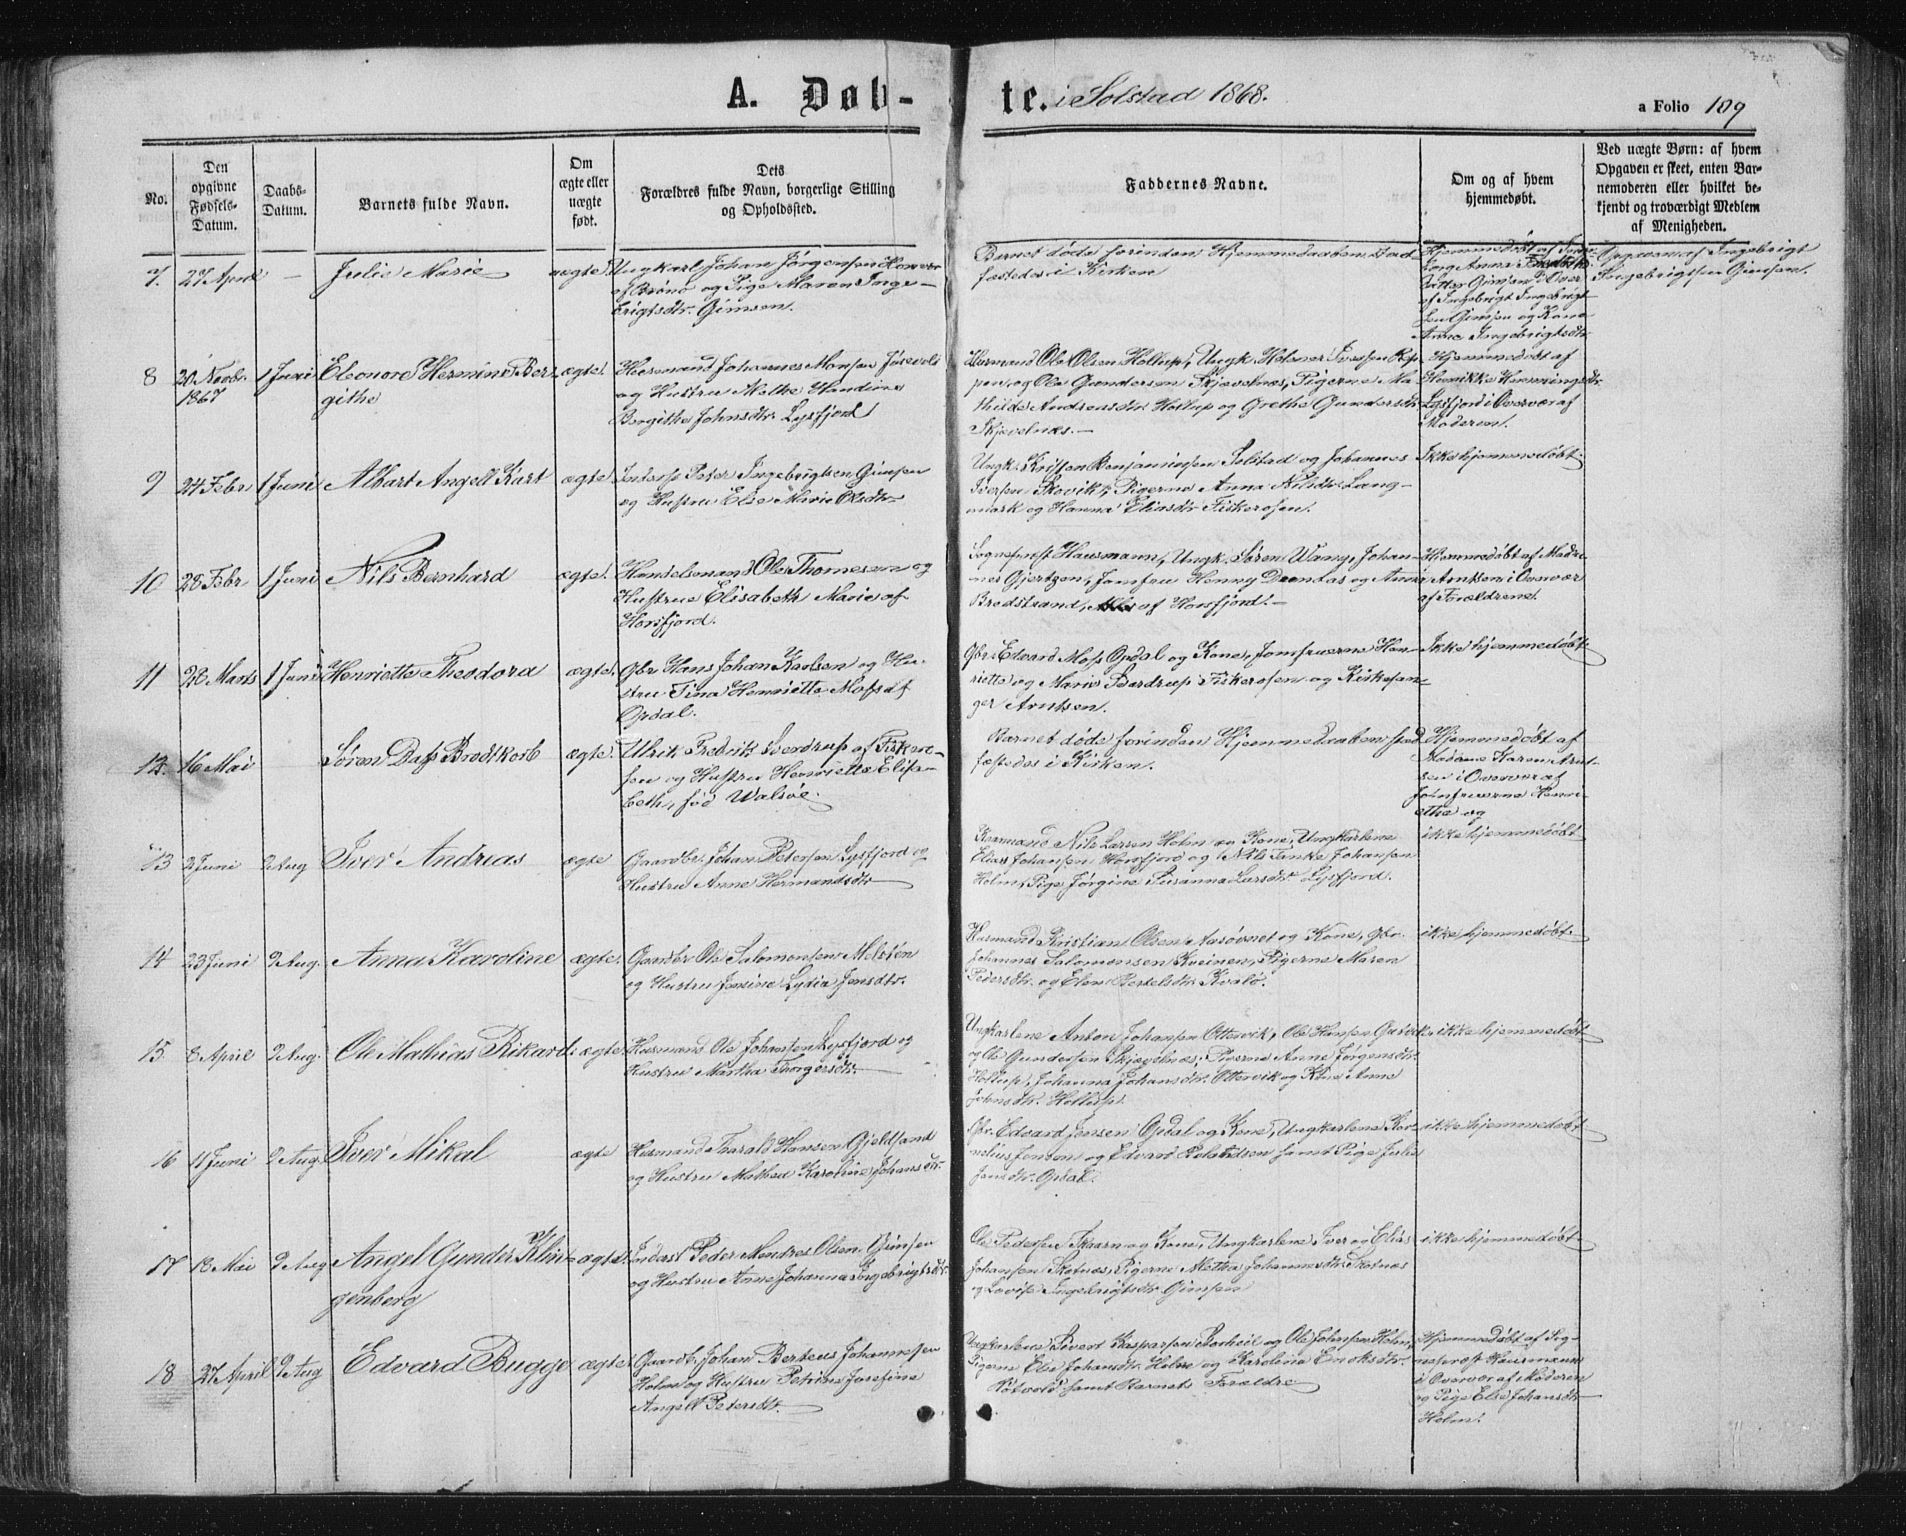 A. Døb-
te. i Solstad 1868.
a Folio 109
No.
Den
opgivne
Fødsels-
Datum.
Daabs-
Datum.
Barnets fulde Navn.
Om
ægte eller
uægte
født.
Dets
Forældres fulde Navn, borgerlige Stilling
og Opholdssted.
Faddernes Navne.
Om og af hvem
hjemmedøbt.
Ved uægte Børn: af hvem
Opgaven er skeet, enten Bar-
nemoderen eller hvilket be-
kjendt og troværdigt Medlem
af Menigheden.
7. 27 April — Julie Marie uægte.
Ungkarl Johan Jørgensen
af Brönö og Pige Maren Inge-
brigtsdtr. Gimsen.
Barnet døde forinden Hjemmedaaben stad
fæstedes i Kirken
Hjemmedøbt af
Gimsen i Over
af Ingebrigt Ingebrigt-
sen Gimsen og Kone
Anna Ingebrigtsdtr
Opgaven af Ingebrigt
Ingebrigtsen Gimsen.
8 20 Novbr. 1 Juni Eleonore Hermine Ber- ægte.
1867
githe
Huusmand Johannes Monsen
og Hustru Methe Handine
Bergithe Johnsdtr. Lysfjord
Huusmand Ole Olsen Hollup, Ungk. Helmer Iversen
og Ole Gundersen Skjevelnæs, Pigerne Ma-
thilde Andreasdtr Hollup og Grethe Gundersdtr
Skjevelnæs. —
Hjemmedøbt af
Henrikke Henningsdtr
Lysfjord i Overvær af
Moderen.
9 24 Febr 1 Juni Albart Angell Kurt ægte.
Inderst Peter Ingebrigtsen Gimsen
og Hustru Else Marie Olsdtr
Ungk. Kristen Benjaminsen Solstad og Johannes
Iversen Skovik, Pigerne Anna Nilsdtr Lang-
mark og Hanna Eliasdtr Fiskerosen.
Ikke hjemmedøbt.
10 28 Febr 1 Juni Nils Bernhard ægte.
Handelsmand Ole Thomesen og
Hustrue Elisabeth Marie af
Horsfjord.
Sognepræst Hausmann, Ungk. Sören Wang, Johan-
nes Gjertsen, Jomfru Henny Dundas og Anna
Bredstrand, af Horsfjord. —
Hjemmedøbt af Mad.
Arntsen i Overvær
af Forældrene.
11 28 Marts 1 Juni Henriette Theodora ægte.
Gbr. Hans Johan Karlsen og Hu-
stru Tina Henriette Mossdt
Opdal.
Gbr. Edvard Moss Opdal og Kone, Jomfruerne Hen-
riette og Marie Sverdrup Fiskerosen og Kirkesan-
ger Arntsen.
Ikke hjemmedøbt.
12. 16 Mai Søren Dass Brodtkorb ægte.
Ulrik Fredrik Sverdrup af Fiskero-
sen og Hustru Henriette Elisa-
beth, fød Walsöe.
Barnet døde forinden Hjemmedaaben stad
fæstedes i Kirken.
Hjemmedøbt af
Madame Karen Arnt-
sen i Overvær af
Jomfruerne Henri-
ethe og
13 2 Juni 2 Aug Iver Andrias ægte
Gaardbr. Johan Petersen Lysfjord og
Hustru Anne Hermandsdtr
Huusmand Nils Larsen Holm og Kone, Ungkarlene
Elias Johansen Horsfjord og Nils Tanke Johansen
Holm, Pige Jørgine Susanna Larsdtr. Lysfjord.
ikke hjemmedøbt
14 23 Juni 2 Aug. Anna Karoline ægte.
Gaardbr Ole Salomonsen Melsteen
og Hustru Jensine Lydia Jensdtr.
Husmand Kristian Olsen Aasöveret og Kone, Gbr.
Johannes Salomonsen Kveinen, Pigerne Maren
Pedersdtr. og Elen Bertelsdtr. Kvalö.
ikke hjemmedøbt.
15. 8 April 2 Aug. Ole Mathias Rikard ægte
Husmand Ole Johansen Lysfjord og
Hustru Martha Thorgersdtr.
Ungkarlene Anton Johansen Ottervik, Ole Hansen
og Ole Gundersen Skjævelnes; Pigerne Anne Jørgensdtr.
Hollup, Johanna Johansdtr. Ottervik og Kone Anne
Johnsdtr. Hollup.
ikke hjemmedøbt
16 11 Juni 2 Aug. Iver Mikal ægte
Husmand Harald Hansen Gjeldsand
og Hustru Mathea Karoline Johansdtr.
Gbr. Edvard Jensen Opdal og Kone, Ungkarlene Kor-
nelius Jensen og Edvard samt Pige Julie
Jensdtr. Opdal.
ikke hjemmedøbt
17 13 Mai 2 Aug Angel Gunder Klin- ægte
genberg
Inderst Peder Mendres Olsen Gimsen
og Hustru Anne Johanna Ingebrigtsdtr.
Ole Pedersen Skaarn og Kone, Ungkarlene Iver og Elias
Johansen Skotnæs, Pigerne Metha Johannesdtr. Skotnæs
og Lovise Ingebrigtsdtr Gimsen
ikke hjemmedøbt
18 27 April 2 Aug Edvard Bugge ægte.
Gaardb. Johan Berteus Johannesen
Holm og Hustru Petrine Josefine
Angell Petersdtr.
Ungkarlene Sivert Kaspersen og Ole Johnsen Holm,
Pigerne Else Johansdtr. Holm og Karoline Eriksdtr.
samt Barnets Forældre
Hjemmedøbt af Sog-
nepræst Hausmann
i Overvær af Moderen
og Pige Else Johansdtr
Holm.